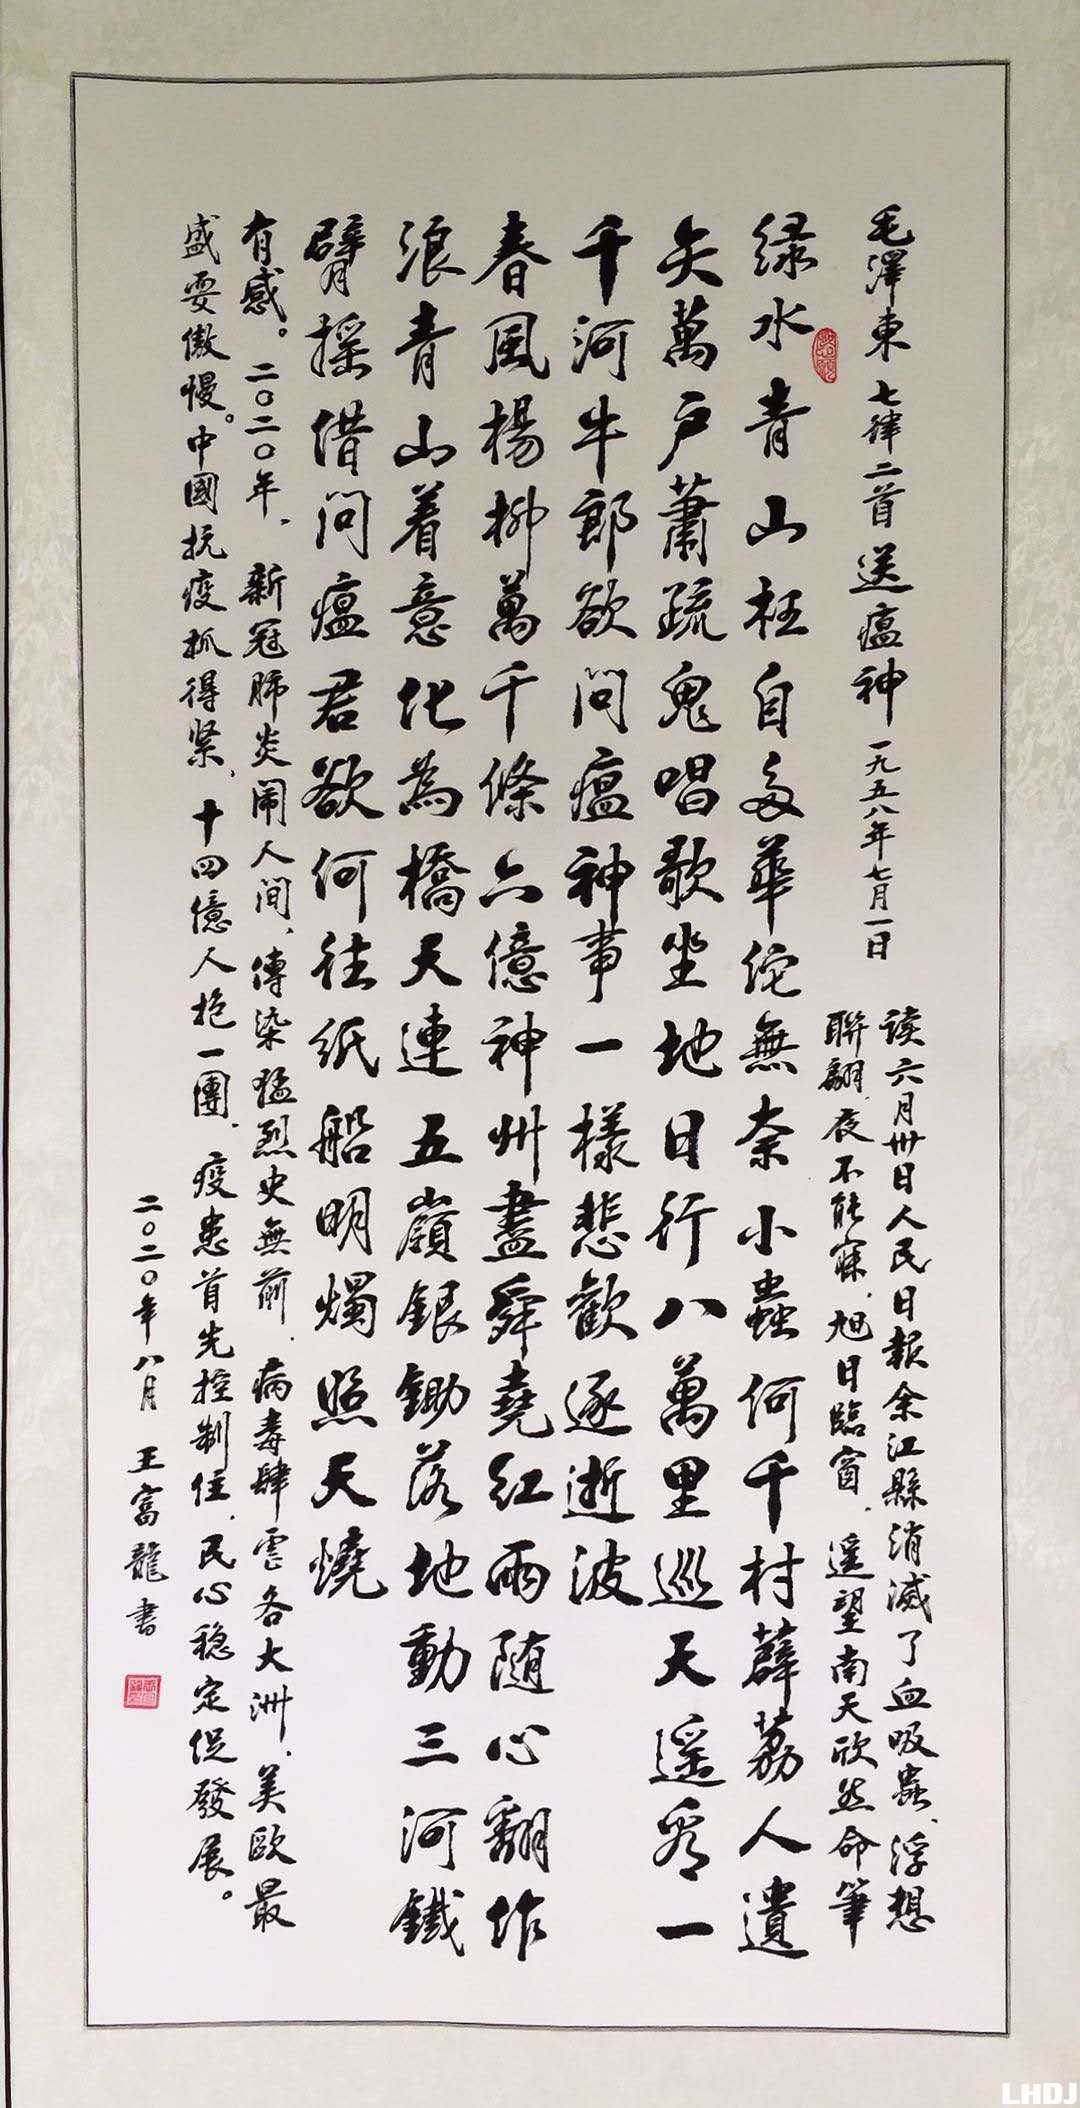 毛澤東 七律二首 送瘟神 一九五八年七月一日
读六月卅日人民日報余江縣消滅了血吸蟲、浮想
聯翩、夜不能寐、旭日臨窗、遥望南天欣然命筆
绿水青山枉自多華佗無奈小蟲何千村薜荔人遺
矢萬戶蕭疏鬼唱歌坐地日行八萬里巡天遥看一
千河牛郎欲問瘟神事一樣悲歡逐逝波
春風楊柳萬千條六億神州盡舜堯红雨随心翻作
浪青山着意化為橋天連五嶺銀鋤落地動三河鐵
臂摇借問瘟君欲何往纸船明燭照天燒
有感。二〇二〇年、新冠肺炎闹人间、傳染猛烈史無前、病毒肆虐各大洲、美欧最
盛耍傲慢。中國抗疫抓得紧、十四億人抱一團、疫患首先控制住、民心稳定促發展。
二〇二〇年八月 王富龍書
LHDJ